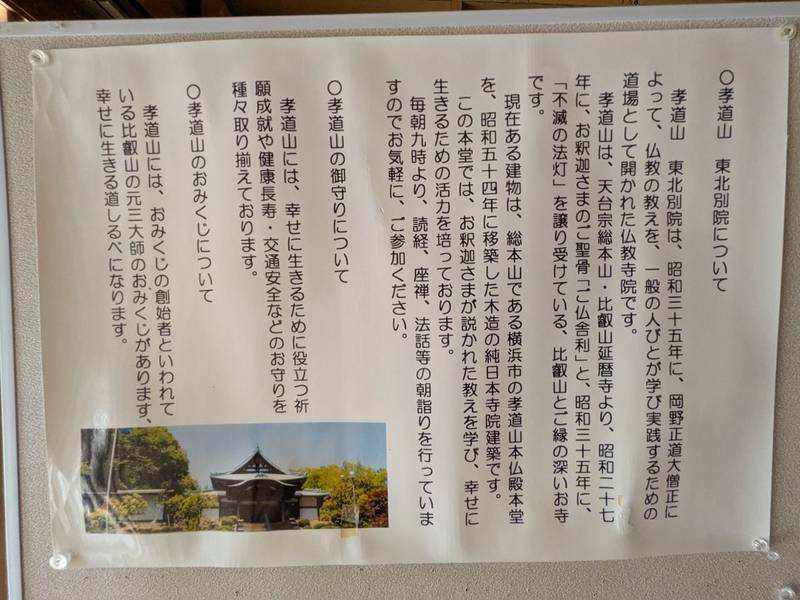 〇孝道山　東北別院について
孝道山　東北別院は、昭和三十五年に、岡野正道大僧正に
よって、仏教の教えを、一般の人びとが学び実践するための
道場として開かれた仏教寺院です。
孝道山は、天台宗総本山・比叡山延暦寺より、昭和二十七
年に、お釈迦さまのご聖骨「ご仏舎利」と、昭和三十五年に、
「不滅の法灯」を譲り受けている、比叡山とご縁の深いお寺
です。
現在ある建物は、総本山である横浜市の孝道山本仏殿本堂
を、昭和五十四年に移築した木造の純日本寺院建築です。
この本堂では、お釈迦さまが説かれた教えを学び、幸せに
生きるための活力を培っております。
毎朝九時より、読経、座禅、法話等の朝詣りを行っていま
すのでお気軽に、ご参加ください。
〇孝道山の御守りについて
孝道山には、幸せに生きるために役立つ祈
願成就や健康長寿・交通安全などのお守りを
種々取り揃えております。
〇孝道山のおみくじについて
孝道山には、おみくじの創始者といわれて
いる比叡山の元三大師のおみくじがあります、
幸せに生きる道しるべになります。